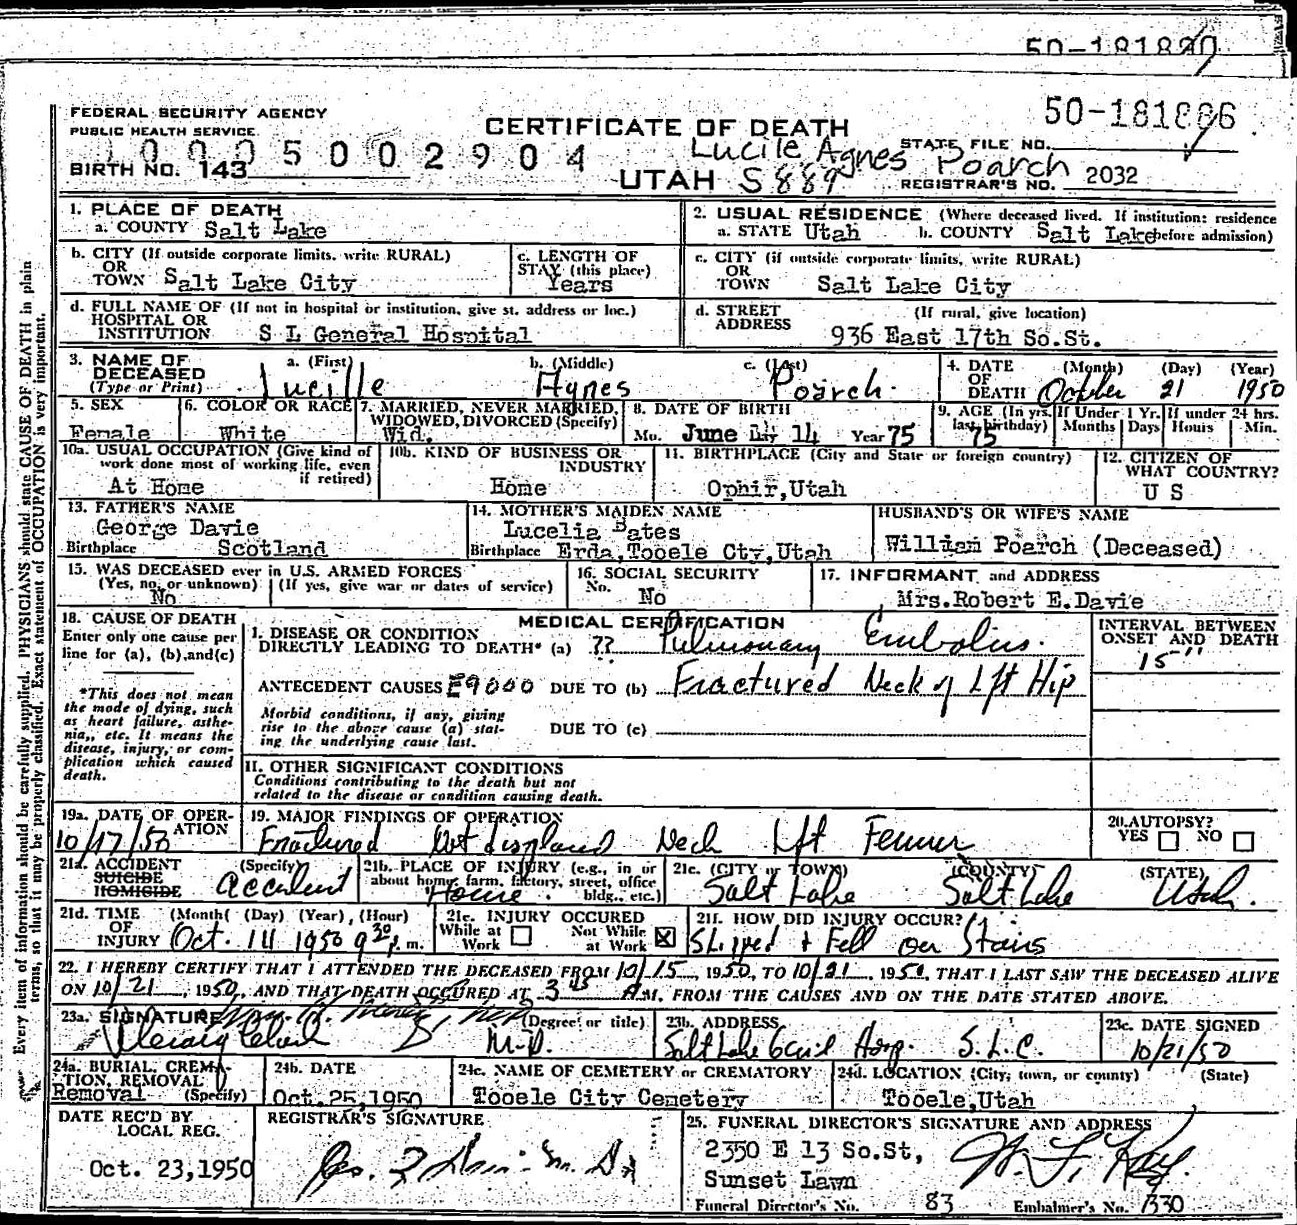 50-181880
50-181886
FEDERAL SECURITY AGENCY
PUBLIC HEALTH SERVICE
CERTIFICATE OF DEATH
1 0 0 0 5 0 0 2 9 0 4
Lucile Agnes Poarch
STATE FILE NO.
BIRTH NO. 143
UTAH S889
REGISTRAR'S NO. 2032
1. PLACE OF DEATH
a. COUNTY Salt Lake
2. USUAL RESIDENCE (Where deceased lived. If institution: residence before admission)
a. STATE Utah b. COUNTY Salt Lake
b. CITY (If outside corporate limits, write RURAL)
OR
TOWN Salt Lake City
c. LENGTH OF
STAY (this place)
Years
c. CITY (if outside corporate limits, write RURAL)
OR
TOWN Salt Lake City
d. FULL NAME OF (If not in hospital or institution, give st. address or loc.)
HOSPITAL OR
INSTITUTION S L General Hospital
d. STREET (If rural, give location)
ADDRESS 936 East 17th So.St.
3. NAME OF
DECEASED
(Type or Print)
a. (First) b. (Middle) c. (Last)
Lucille Agnes Poarch
4. DATE (Month) (Day) (Year)
OF
DEATH October 21 1950
5. SEX
Female
6. COLOR OR RACE
White
7. MARRIED, NEVER MARRIED,
WIDOWED, DIVORCED (Specify)
Wid.
8. DATE OF BIRTH
Mo. June Day 14 Year 75
9. AGE (In yrs. last birthday)
75
If Under 1 Yr.
Months Days
If under 24 hrs.
Hours Min.
10a. USUAL OCCUPATION (Give kind of
work done most of working life, even
if retired)
At Home
10b. KIND OF BUSINESS OR
INDUSTRY
Home
11. BIRTHPLACE (City and State or foreign country)
Ophir,Utah
12. CITIZEN OF
WHAT COUNTRY?
U S
13. FATHER'S NAME
George Davie
Birthplace Scotland
14. MOTHER'S MAIDEN NAME
Lucelia Bates
Birthplace Erda,Tooele Cty,Utah
HUSBAND'S OR WIFE'S NAME
William Poarch (Deceased)
15. WAS DECEASED ever in U.S. ARMED FORCES
(Yes, no, or unknown) (If yes, give war or dates of service)
No
16. SOCIAL SECURITY
No. No
17. INFORMANT and ADDRESS
Mrs.Robert E.Davie
18. CAUSE OF DEATH
Enter only one cause per
line for (a), (b),and(c)
*This does not mean
the mode of dying, such
as heart failure, asthe-
nia, etc. It means the
disease, injury, or com-
plication which caused
death.
MEDICAL CERTIFICATION
I. DISEASE OR CONDITION
DIRECTLY LEADING TO DEATH* (a) ?? Pulmonary Embolus.
ANTECEDENT CAUSES E9000 DUE TO (b) Fractured Neck of Lft Hip
Morbid conditions, if any, giving
rise to the above cause (a) stat-
ing the underlying cause last.
DUE TO (c)
INTERVAL BETWEEN
ONSET AND DEATH
15"
II. OTHER SIGNIFICANT CONDITIONS
Conditions contributing to the death but not
related to the disease or condition causing death.
19a. DATE OF OPER-
ATION
10/17/50
19. MAJOR FINDINGS OF OPERATION
Fractured Not displaced Neck Lft Femur
20. AUTOPSY?
YES NO
21a. ACCIDENT (Specify)
SUICIDE
HOMICIDE
Accident
21b. PLACE OF INJURY (e.g., in or
about home, farm, factory, street, office
bldg., etc.)
Home.
21c. (CITY or TOWN) (COUNTY) (STATE)
Salt Lake Salt Lake Utah.
21d. TIME (Month) (Day) (Year) (Hour)
OF
INJURY Oct. 14 1950 9 30 p.m.
21e. INJURY OCCURED
While at Work
Not While at Work X
21f. HOW DID INJURY OCCUR?
Slipped + Fell on Stairs
22. I HEREBY CERTIFY THAT I ATTENDED THE DECEASED FROM 10/15, 1950, TO 10/21, 1950, THAT I LAST SAW THE DECEASED ALIVE
ON 10/21, 1950, AND THAT DEATH OCCURED AT 3 45 A.M. FROM THE CAUSES AND ON THE DATE STATED ABOVE.
23a. SIGNATURE (Degree or title)
M.D.
23b. ADDRESS
Salt Lake Genl Hosp. S.L.C.
23c. DATE SIGNED
10/21/50
24a. BURIAL, CREMA-
TION, REMOVAL
(Specify)
Removal
24b. DATE
Oct.25,1950
24c. NAME OF CEMETERY or CREMATORY
Tooele City Cemetery
24d. LOCATION (City, town, or county) (State)
Tooele,Utah
DATE REC'D BY
LOCAL REG.
Oct. 23,1950
REGISTRAR'S SIGNATURE
25. FUNERAL DIRECTOR'S SIGNATURE AND ADDRESS
2350 E 13 So.St,
Sunset Lawn
Funeral Director's No. 83 Embalmer's No. 330
Every item of information should be carefully supplied. PHYSICIANS should state CAUSE OF DEATH in plain
terms, so that it may be properly classified. Exact statement of OCCUPATION is very important.